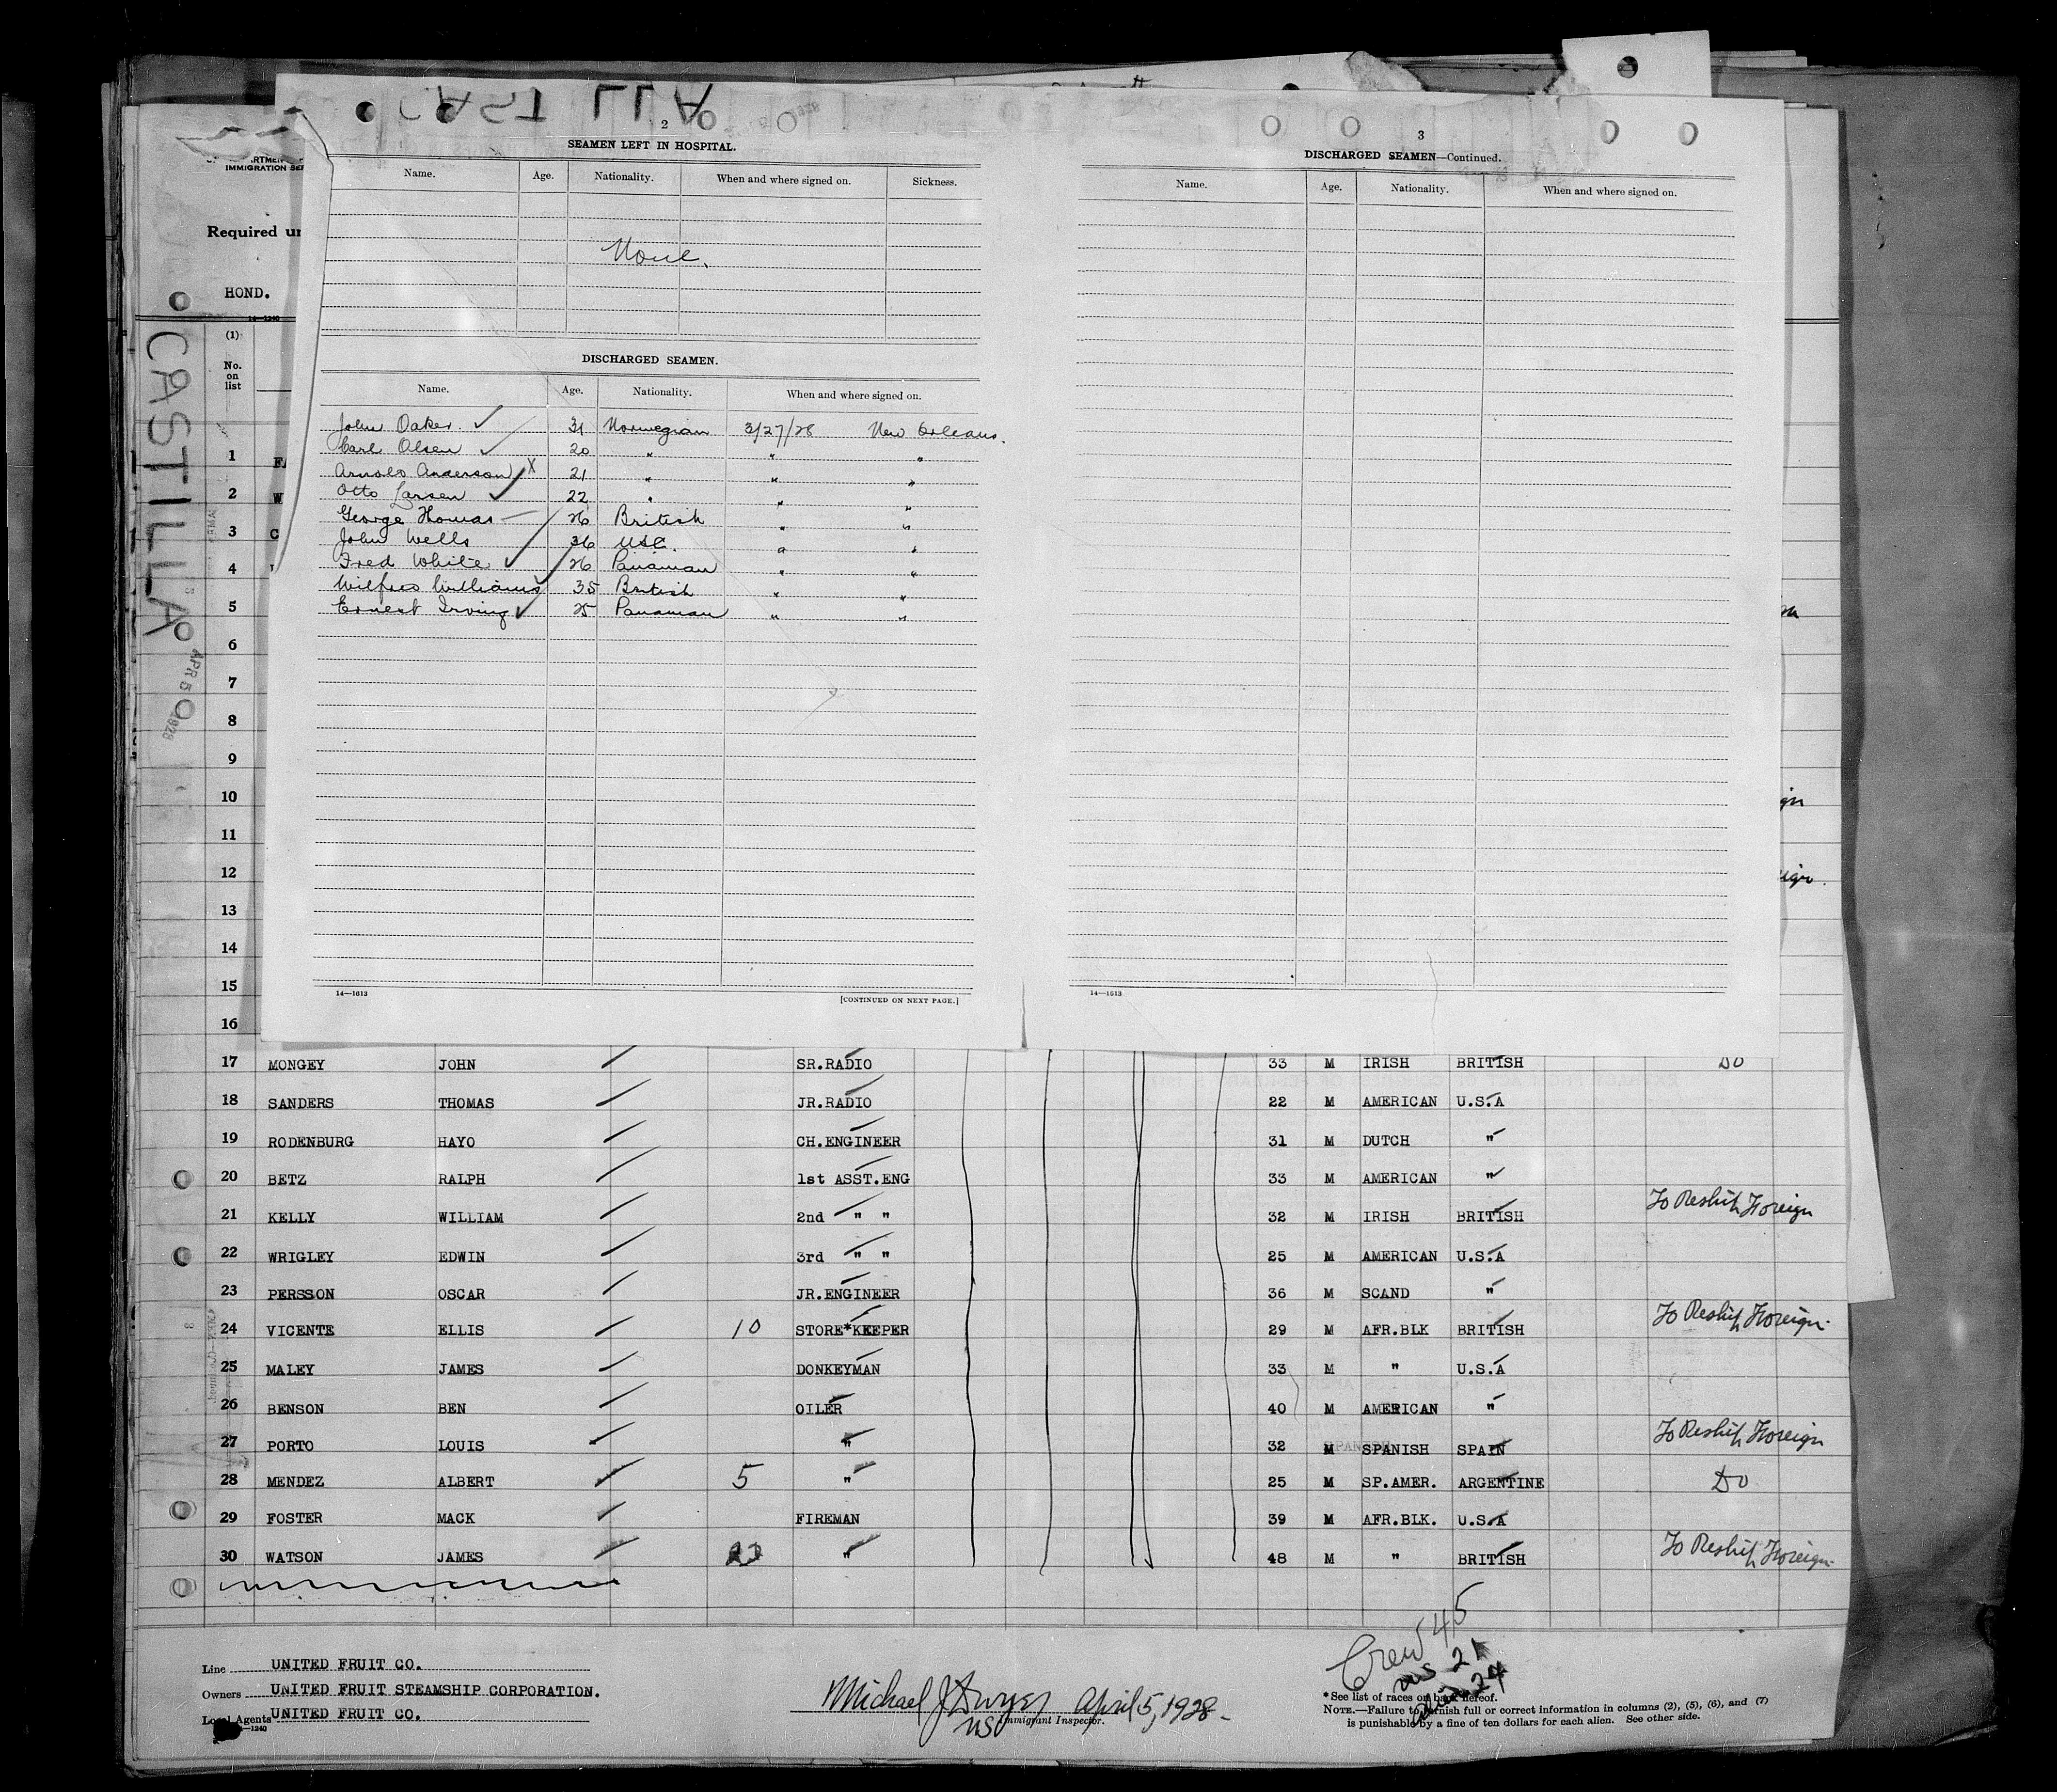 2
SEAMEN LEFT IN HOSPITAL.
Name. Age. Nationality. When and where signed on. Sickness.
None.
DISCHARGED SEAMEN.
Name. Age. Nationality. When and where signed on.
John Oaker. 31 Norwegian 3/27/28 New Orleans.
Carl Olsen 20 " " "
Arnold Anderson X 21 " " "
Otto Larsen 22 " " "
George Thomas 26 British " "
John Wells 36 USC. " "
Fred White 26 Panaman " "
Wilfred Williams 35 British " "
Ernest Irving 25 Panaman " "
14—1613 [CONTINUED ON NEXT PAGE.]
3
DISCHARGED SEAMEN—Continued.
Name. Age. Nationality. When and where signed on.
14—1613
IMMIGRATION SER
Required un
HOND.
14—1240
CASTILLA
APR 5 1928
(1)
No.
on
list
1
2
3
4
5
6
7
8
9
10
11
12
13
14
15
16
17 MONGEY JOHN SR.RADIO 33 M IRISH BRITISH DO
18 SANDERS THOMAS JR.RADIO 22 M AMERICAN U.S.A
19 RODENBURG HAYO CH.ENGINEER 31 M DUTCH "
20 BETZ RALPH 1st ASST.ENG 33 M AMERICAN "
21 KELLY WILLIAM 2nd " " 32 M IRISH BRITISH To Reship Foreign
22 WRIGLEY EDWIN 3rd " " 25 M AMERICAN U.S.A
23 PERSSON OSCAR JR.ENGINEER 36 M SCAND "
24 VICENTE ELLIS 10 STORE*KEEPER 29 M AFR.BLK BRITISH To Reship Foreign.
25 MALEY JAMES DONKEYMAN 33 M " U.S.A
26 BENSON BEN OILER 40 M AMERICAN "
27 PORTO LOUIS " 32 M SPANISH SPAIN To Reship Foreign
28 MENDEZ ALBERT 5 " 25 M SP.AMER. ARGENTINE DO
29 FOSTER MACK FIREMAN 39 M AFR.BLK. U.S.A
30 WATSON JAMES " 48 M " BRITISH To Reship Foreign.
Crew 45
21
24
Line UNITED FRUIT CO.
Owners UNITED FRUIT STEAMSHIP CORPORATION.
Local Agents UNITED FRUIT CO.
1240
Michael J Dwyer April 5, 1928.
Immigrant Inspector.
*See list of races on back hereof.
NOTE.—Failure to furnish full or correct information in columns (2), (5), (6), and (7)
is punishable by a fine of ten dollars for each alien. See other side.